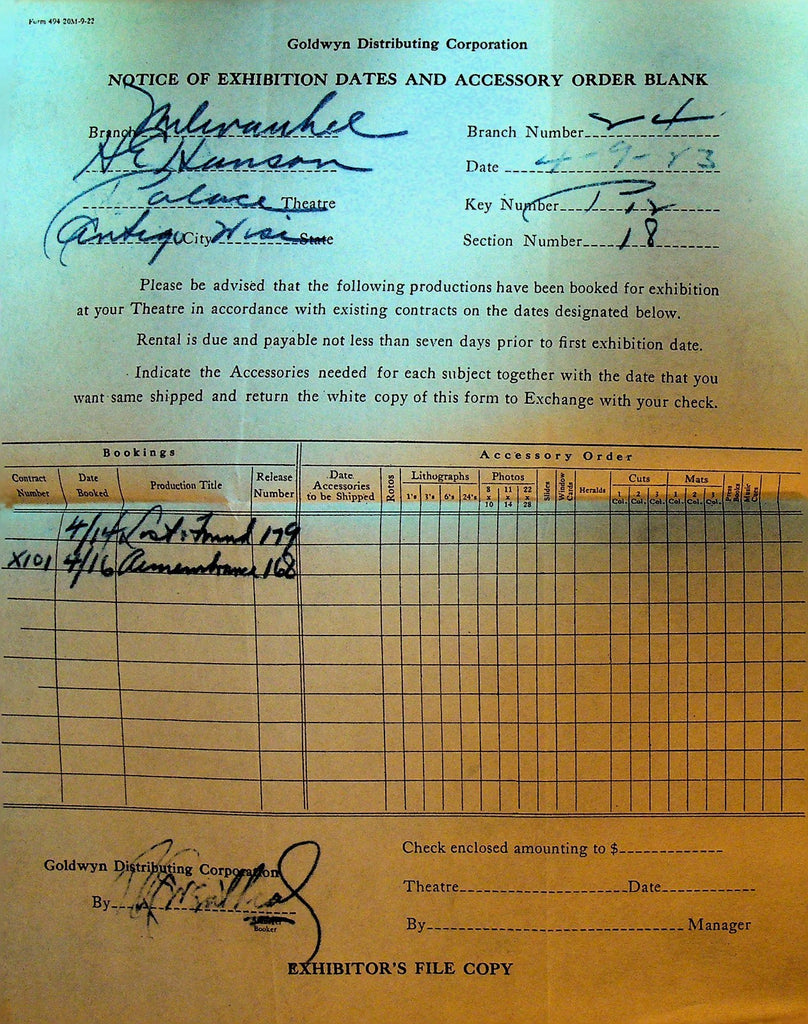 Form 494 20M-9-22
Goldwyn Distributing Corporation
NOTICE OF EXHIBITION DATES AND ACCESSORY ORDER BLANK
Branch Milwaukee Branch Number 24
H E Hanson Date 4-9-23
Palace Theatre Key Number P12
Antigo City Wisc State Section Number 18
Please be advised that the following productions have been booked for exhibition
at your Theatre in accordance with existing contracts on the dates designated below.
Rental is due and payable not less than seven days prior to first exhibition date.
Indicate the Accessories needed for each subject together with the date that you
want same shipped and return the white copy of this form to Exchange with your check.
Bookings Accessory Order
Contract Number Date Booked Production Title Release Number Date Accessories to be Shipped Rotos Lithographs 1's 1's 6's 24's Photos 8 x 10 11 x 14 22 x 28 Slides Window Cards Heralds Cuts 1 Col. 2 Col. 3 Col. Mats 1 Col. 2 Col. 3 Col. Press Books Music Cues
4/14 Lost & Found 179
X101 4/16 Remembrance 168
Goldwyn Distributing Corporation
By
Booker
Check enclosed amounting to $
Theatre Date
By Manager
EXHIBITOR'S FILE COPY